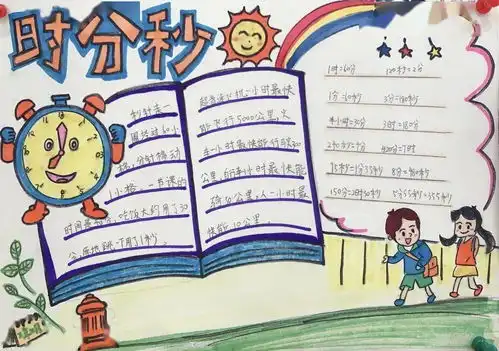 时分秒
秒针走一
圈经过60小
格,分针移动
1小格。一节课的
时间是40分,吃饭大约用了30
分,原地跳一下用了1秒
超音速飞机一小时最快
能飞行5000公里,火
车一小时最快能行驶300
公里,自行车1小时最快能
骑40公里,人一小时最
快能10公里。
1时=60分
120秒=2分
1分=60秒
3分=180秒
半小时=30分
3时=180分
420分=7时
8分=480秒
150分=2时30分
5分55秒=355秒